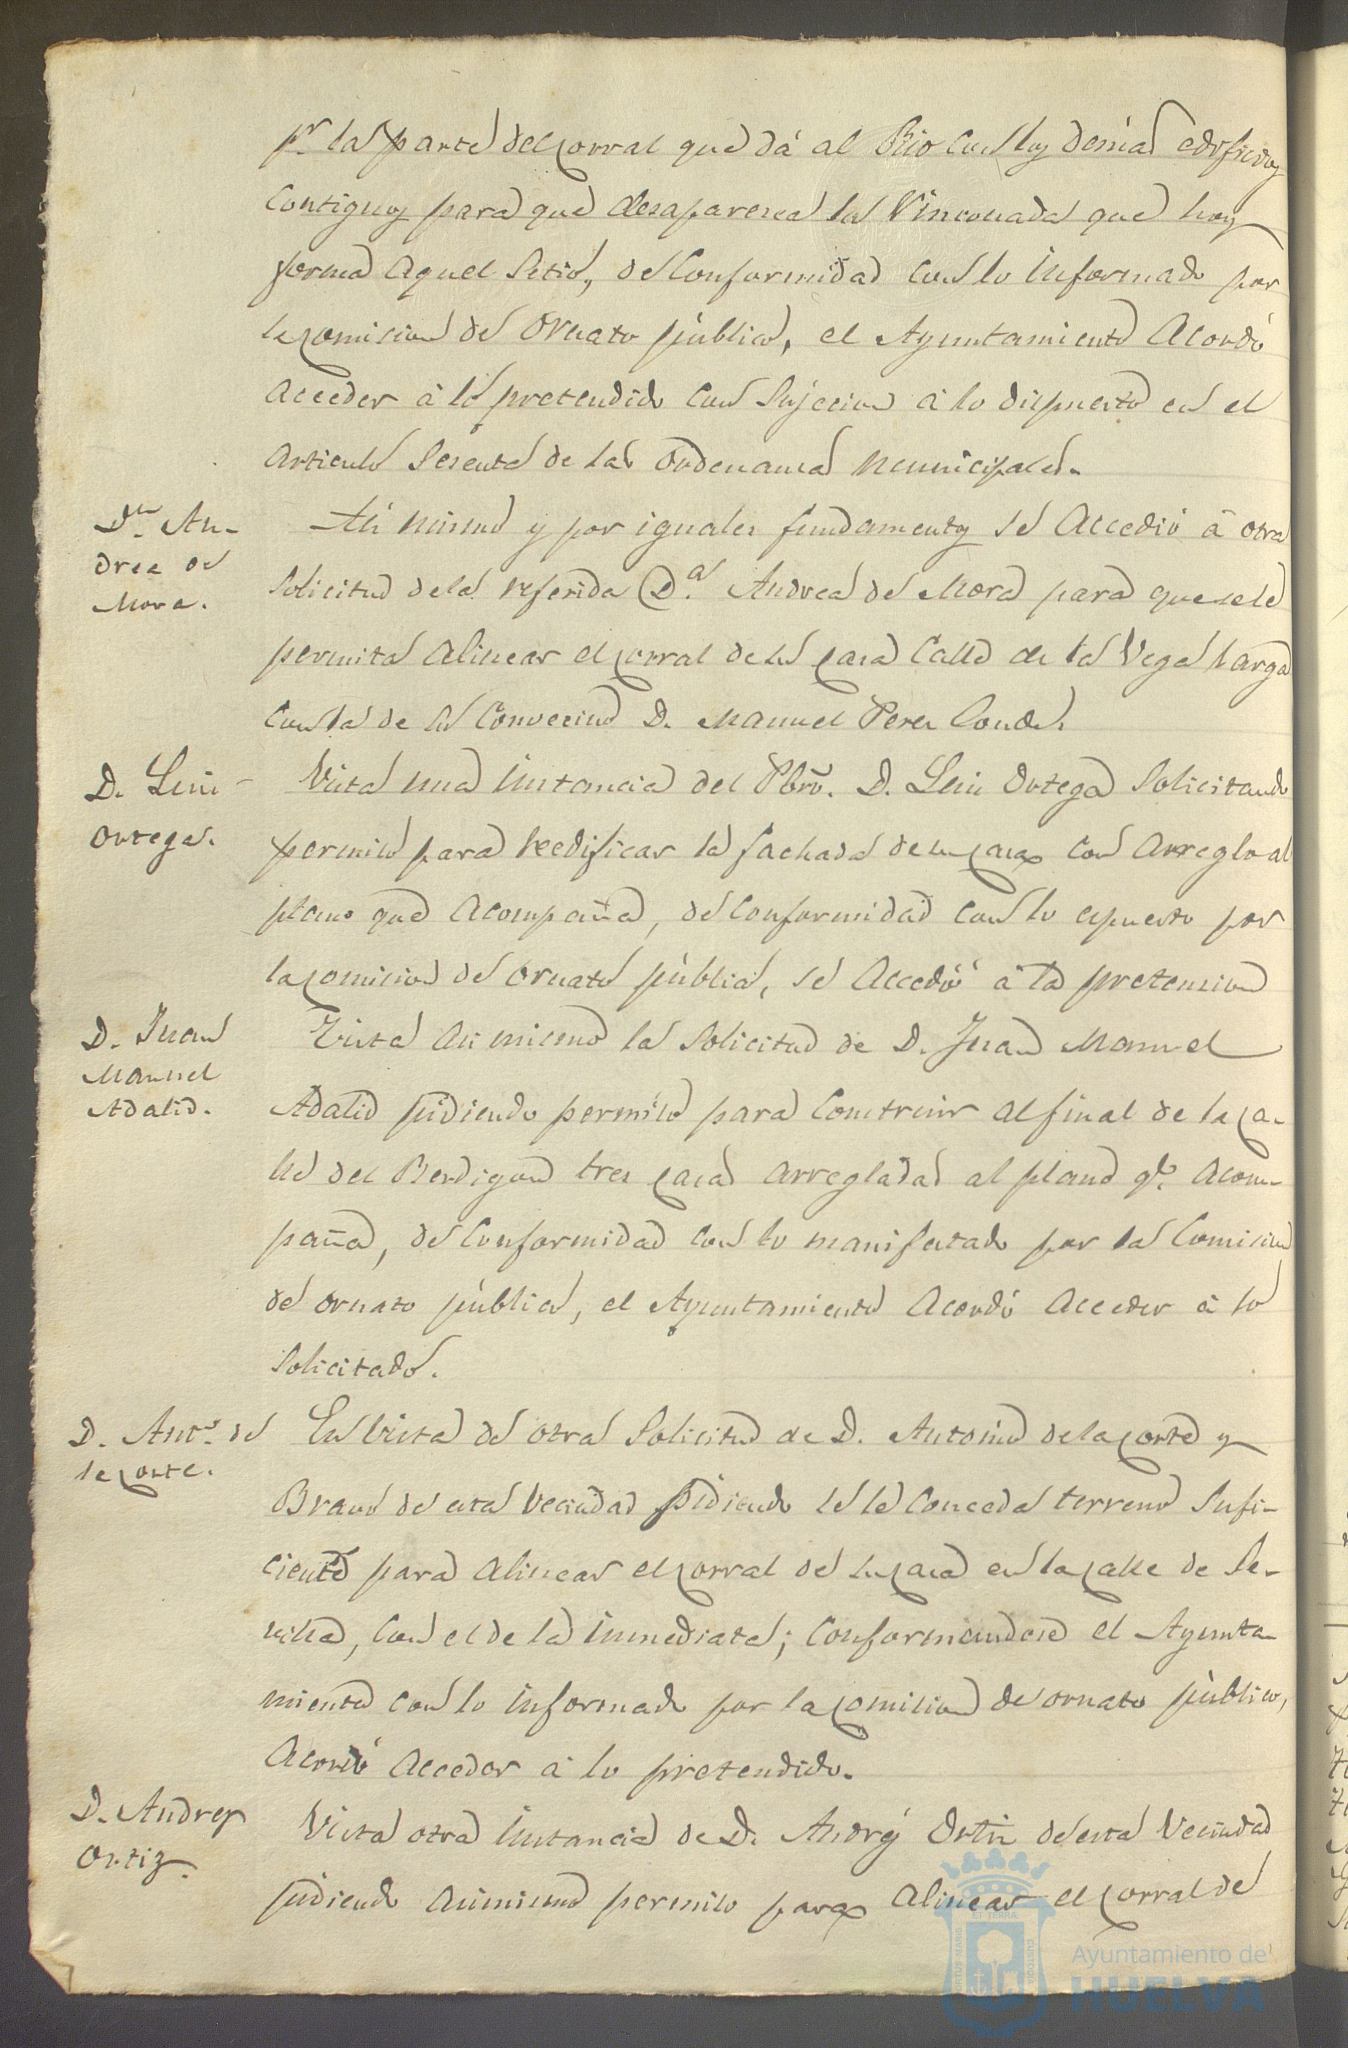 pr. la parte del corral que dá al Rio con los demás edificios
contiguos para que desaparesca la Rinconada que hoy
forma aquel Sitio, de conformidad con lo informado por
la comision de Ornato público, el Ayuntamiento Acordó
acceder á lo pretendido con Sujecion á lo dispuesto en el
articulo Sesenta de las Ordenanzas municipales.
Dña. An-
drea de
Mora.
Asi mismo y por iguales fundamentos se accedió á otra
Solicitud de la referida D.ª Andrea de Mora para que se le
permita alinear el corral de su casa Calle de la Vega larga
con la de su convecino D. Manuel Perez Conde.
D. Luis
Ortega.
Vista una instancia del Pbro. D. Luis Ortega Solicitando
permiso para reedificar la fachada de su casa con arreglo al
plano que acompaña, de conformidad con lo espuesto por
la comision de ornato público, se accedió á la pretension
D. Juan
Manuel
Adalid.
Vista asi mismo la Solicitud de D. Juan Manuel
Adalid pidiendo permiso para construir al final de la ca-
lle del Berdigon tres casas arregladas al plano qe. acom-
paña, de conformidad con lo manifestado por la Comision
de ornato público, el Ayuntamiento Acordó acceder á lo
Solicitado.
D. Anto. de
la Corte.
En Vista de otra Solicitud de D. Antonio de la Corte y
Bravo de esta Vecindad pidiendo se le conceda terreno Sufi-
ciente para alinear el corral de su casa en la calle de Se-
villa, con el de la inmediata; conformandose el Ayunta-
miento con lo informado por la comision de ornato público,
Acordó acceder á lo pretendido.
D. Andres
Ortiz.
Vista otra instancia de D. Andrés Ortiz de esta Vecindad
pidiendo asimismo permiso para alinear el corral de
Ayuntamiento de
HUELVA